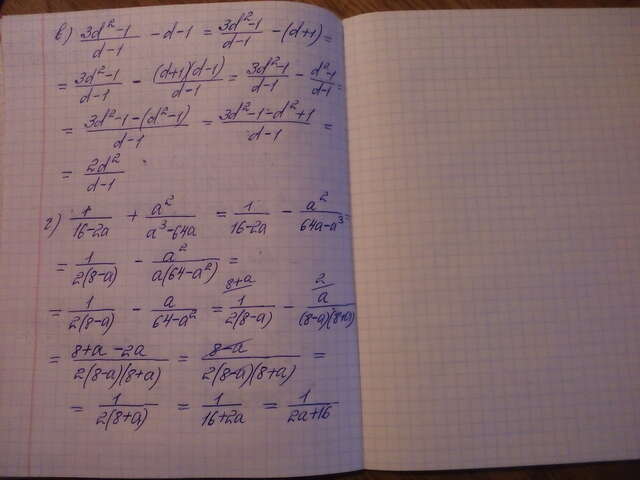 в) (3d²-1)/(d-1) - d-1 = (3d²-1)/(d-1) - (d+1) =
= (3d²-1)/(d-1) - ((d+1)(d-1))/(d-1) = (3d²-1)/(d-1) - (d²-1)/(d-1) =
= (3d²-1-(d²-1))/(d-1) = (3d²-1-d²+1)/(d-1) =
= 2d²/(d-1)
г) 1/(16-2a) + a²/(a³-64a) = 1/(16-2a) - a²/(64a-a³) =
= 1/(2(8-a)) - a²/(a(64-a²)) =
= 1/(2(8-a)) - a/(64-a²) = 8+a/ 1/(2(8-a)) - 2/ a/((8-a)(8+a))
= (8+a-2a)/(2(8-a)(8+a)) = (8-a)/(2(8-a)(8+a)) =
= 1/(2(8+a)) = 1/(16+2a) = 1/(2a+16)